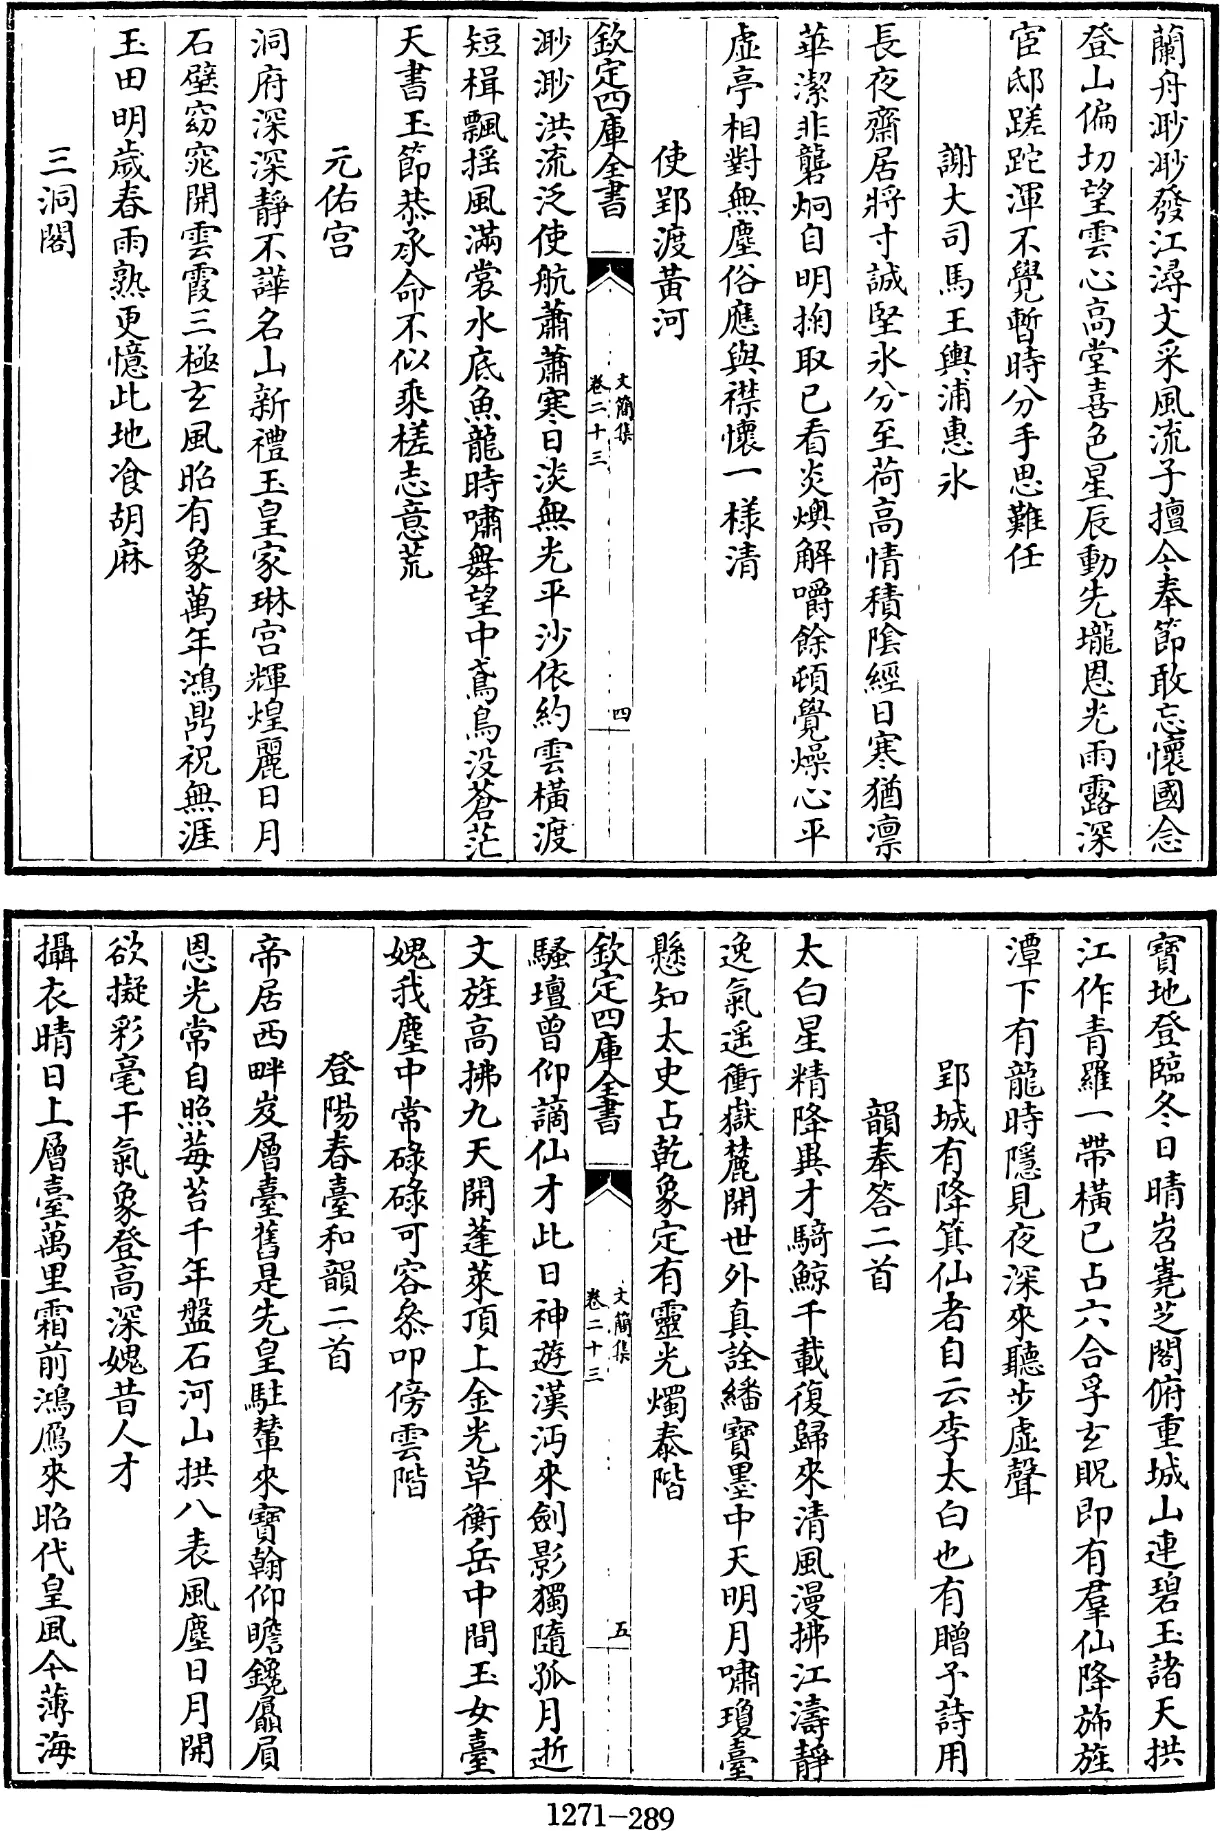 蘭舟渺渺發江潯文采風流子擅今奉節敢忘懷國念
登山偏切望雲心高堂喜色星辰動先壠恩光雨露深
宦邸蹉跎渾不覺暫時分手思難任
謝大司馬王輿浦惠氷
長夜齋居將寸誠堅氷分至荷高情積陰經日寒猶凛
華潔非礱炯自明掬取已看炎燠解嚼餘頓覺燥心平
虛亭相對無塵俗應與襟懷一様清
使郢渡黃河
欽定四庫全書
文簡集
卷二十三
四
渺渺洪流泛使航蕭蕭寒日淡無光平沙依約雲橫渡
短楫飄揺風滿裳水底魚龍時嘯舞望中鳶鳥没蒼茫
天書玉節恭承命不似乘槎志意荒
元佑宫
洞府深深靜不譁名山新禮玉皇家琳宫輝煌麗日月
石壁窈窕開雲霞三極玄風昭有象萬年鴻鼎祝無涯
玉田明歲春雨熟更憶此地飡胡麻
三洞閣
寶地登臨冬日晴岧嶤芝閣俯重城山連碧玉諸天拱
江作青羅一帶橫已占六合孚玄貺即有羣仙降斾旌
潭下有龍時隱見夜深來聽步虛聲
郢城有降箕仙者自云李太白也有贈予詩用
韻奉答二首
太白星精降異才騎鯨千載復歸來清風漫拂江濤靜
逸氣遥衝嶽麓開世外真詮繙寶墨中天明月嘯瓊臺
懸知太史占乾象定有靈光燭泰階
欽定四庫全書
文簡集
卷二十三
五
騷壇曾仰謫仙才此日神遊漢沔來劍影獨隨孤月逝
文旌高拂九天開蓬萊頂上金光草衡岳中間玉女臺
媿我塵中常碌碌可容叅叩傍雲階
登陽春臺和韻二首
帝居西畔岌層臺舊是先皇駐輦來寶翰仰瞻鑱贔屓
恩光常自照莓苔千年盤石河山拱八表風塵日月開
欲擬彩毫干氣象登高深媿昔人才
攝衣晴日上層臺萬里霜前鴻鴈來昭代皇風今薄海
1271—289